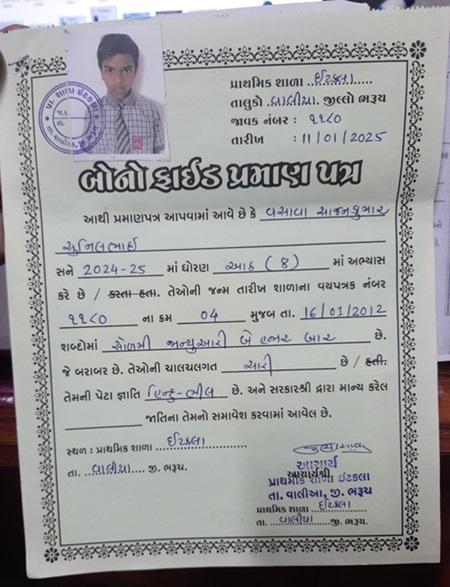 પ્રાથમિક શાળા ઈટકલા
તાલુકો વાલીયા. જીલ્લો ભરૂચ
જાવક નંબર : ૧૧૮૦
તારીખ : 11/01/2025
બોનોફાઈડ પ્રમાણ પત્ર
આથી પ્રમાણપત્ર આપવામાં આવે છે કે વસાવા સાજનકુમાર
સુનિલભાઈ
સને 2024-25 માં ધોરણ આઠ (8) માં અભ્યાસ
કરે છે / કરતા હતા. તેઓની જન્મ તારીખ શાળાના વયપત્રક નંબર
૧૧૮૦ ના ક્રમ 04 મુજબ તા. 16/01/2012
શબ્દોમાં સોળમી જાન્યુઆરી બે હજાર બાર છે.
જે બરાબર છે. તેઓની ચાલચલગત સારી છે / હતી.
તેમની પેટા જ્ઞાતિ હિન્દુ-ભીલ છે. અને સરકારશ્રી દ્વારા માન્ય કરેલ
જાતિના તેમનો સમાવેશ કરવામાં આવેલ છે.
સ્થળ : પ્રાથમિક શાળા ઈટકલા
તા. વાલીયા જી. ભરૂચ.
આચાર્ય
આચાર્યશ્રી
પ્રાથમિક શાળા ઈટકલા
તા. વાલીઆ, જી. ભરૂચ
પ્રાથમિક શાળા ઈટકલા
તા. વાલીયા જી. ભરૂચ.